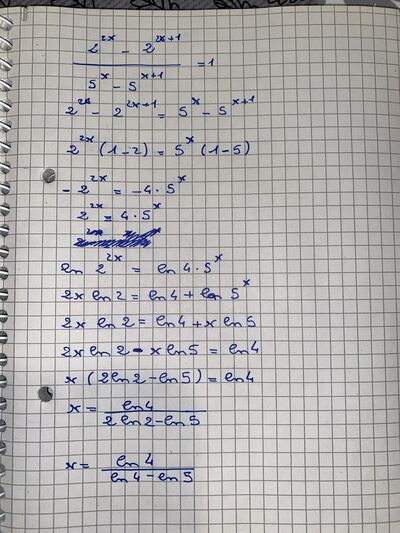 (2^(2x) - 2^(2x+1)) / (5^x - 5^(x+1)) = 1
2^(2x) - 2^(2x+1) = 5^x - 5^(x+1)
2^(2x) (1-2) = 5^x (1-5)
- 2^(2x) = -4 · 5^x
2^(2x) = 4 · 5^x
ln 2^(2x) = ln 4 · 5^x
2x ln 2 = ln 4 + ln 5^x
2x ln 2 = ln 4 + x ln 5
2x ln 2 - x ln 5 = ln 4
x (2 ln 2 - ln 5) = ln 4
x = ln 4 / (2 ln 2 - ln 5)
x = ln 4 / (ln 4 - ln 5)